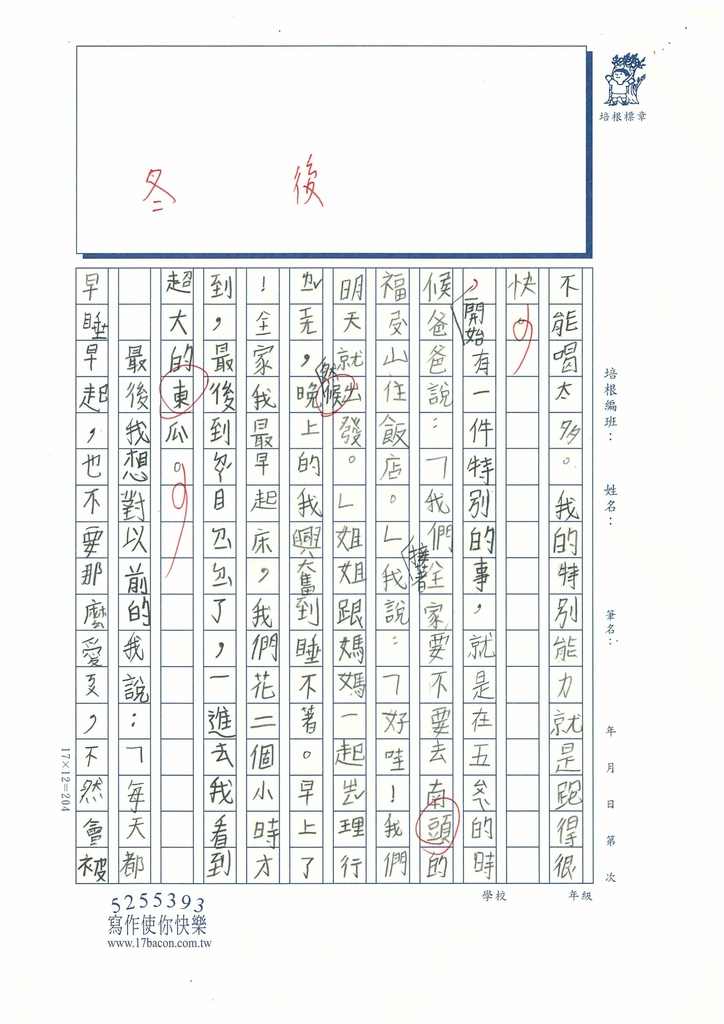 培根標章
冬 後
培根編班： 姓名： 筆名： 年 月 日 第 次
不能喝太多。我的特別能力就是跑得很
快
，開始有一件特別的事，就是在五的時
候爸爸說：「我們全家要不要去南頭的
接著
福受山住飯店。」我說：「好哇！我們
明天就出發。」姐姐跟媽媽一起理行
，晚上的我興奮到睡不著。早上了
然候
！全家我最早起床，我們花二個小時才
到，最後到了，一進去我看到
超大的東瓜。
最後我想對以前的我說：「每天都
早睡早起，也不要那麼愛，不然會被
17×12=204
學校 年級
5255393
寫作使你快樂
www.17bacon.com.tw